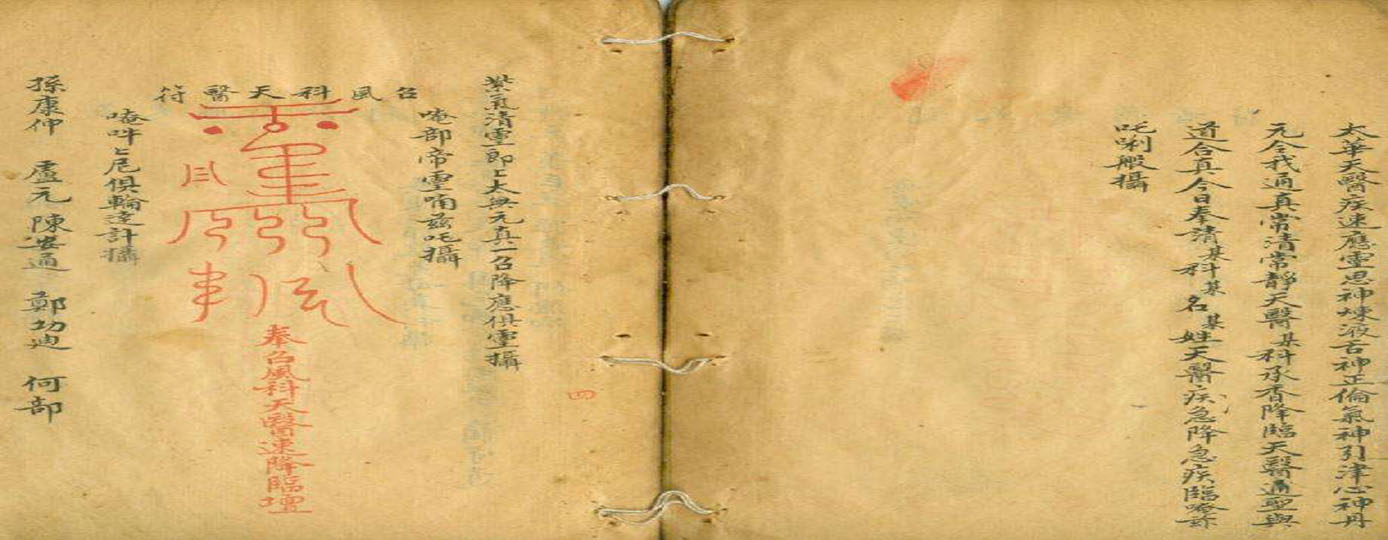 太華天醫疾速應靈思神煉液舌神正倫氣神引津心神丹
元令我通真常清常靜天醫某科承香降臨天醫通聖與
道合真今日奉請某科某名某姓天醫疾急降急疾臨
吒唎般攝
紫氣清靈郎郎太無元真一召降應俱靈攝
唵部帝靈喃茲吒攝
召風科天醫符
奉召風科天醫速降臨壇
唵吽吽尼俱輪達計攝
孫康仲 盧元 陳安通 鄭功迪 何部
四